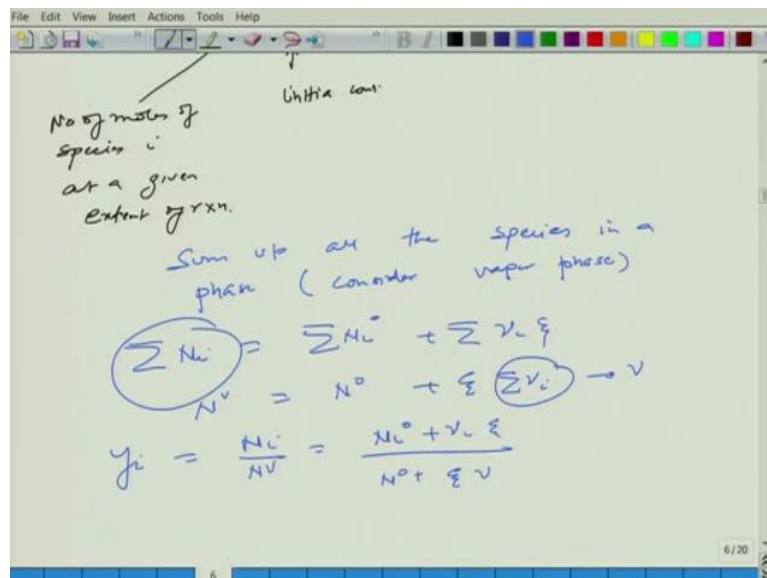 File Edit View Insert Actions Tools Help
B I
No of moles of
species i
at a given
extent of rxn.
initia
Sum up all the species in a
phase (consider vapor phase)
∑ Ni = ∑ Ni° + ∑ νi ξ
N^V = N° + ξ ∑νi → ν
yi = Ni/N^V = (Ni° + νi ξ)/(N° + ξ ν)
6/20
6